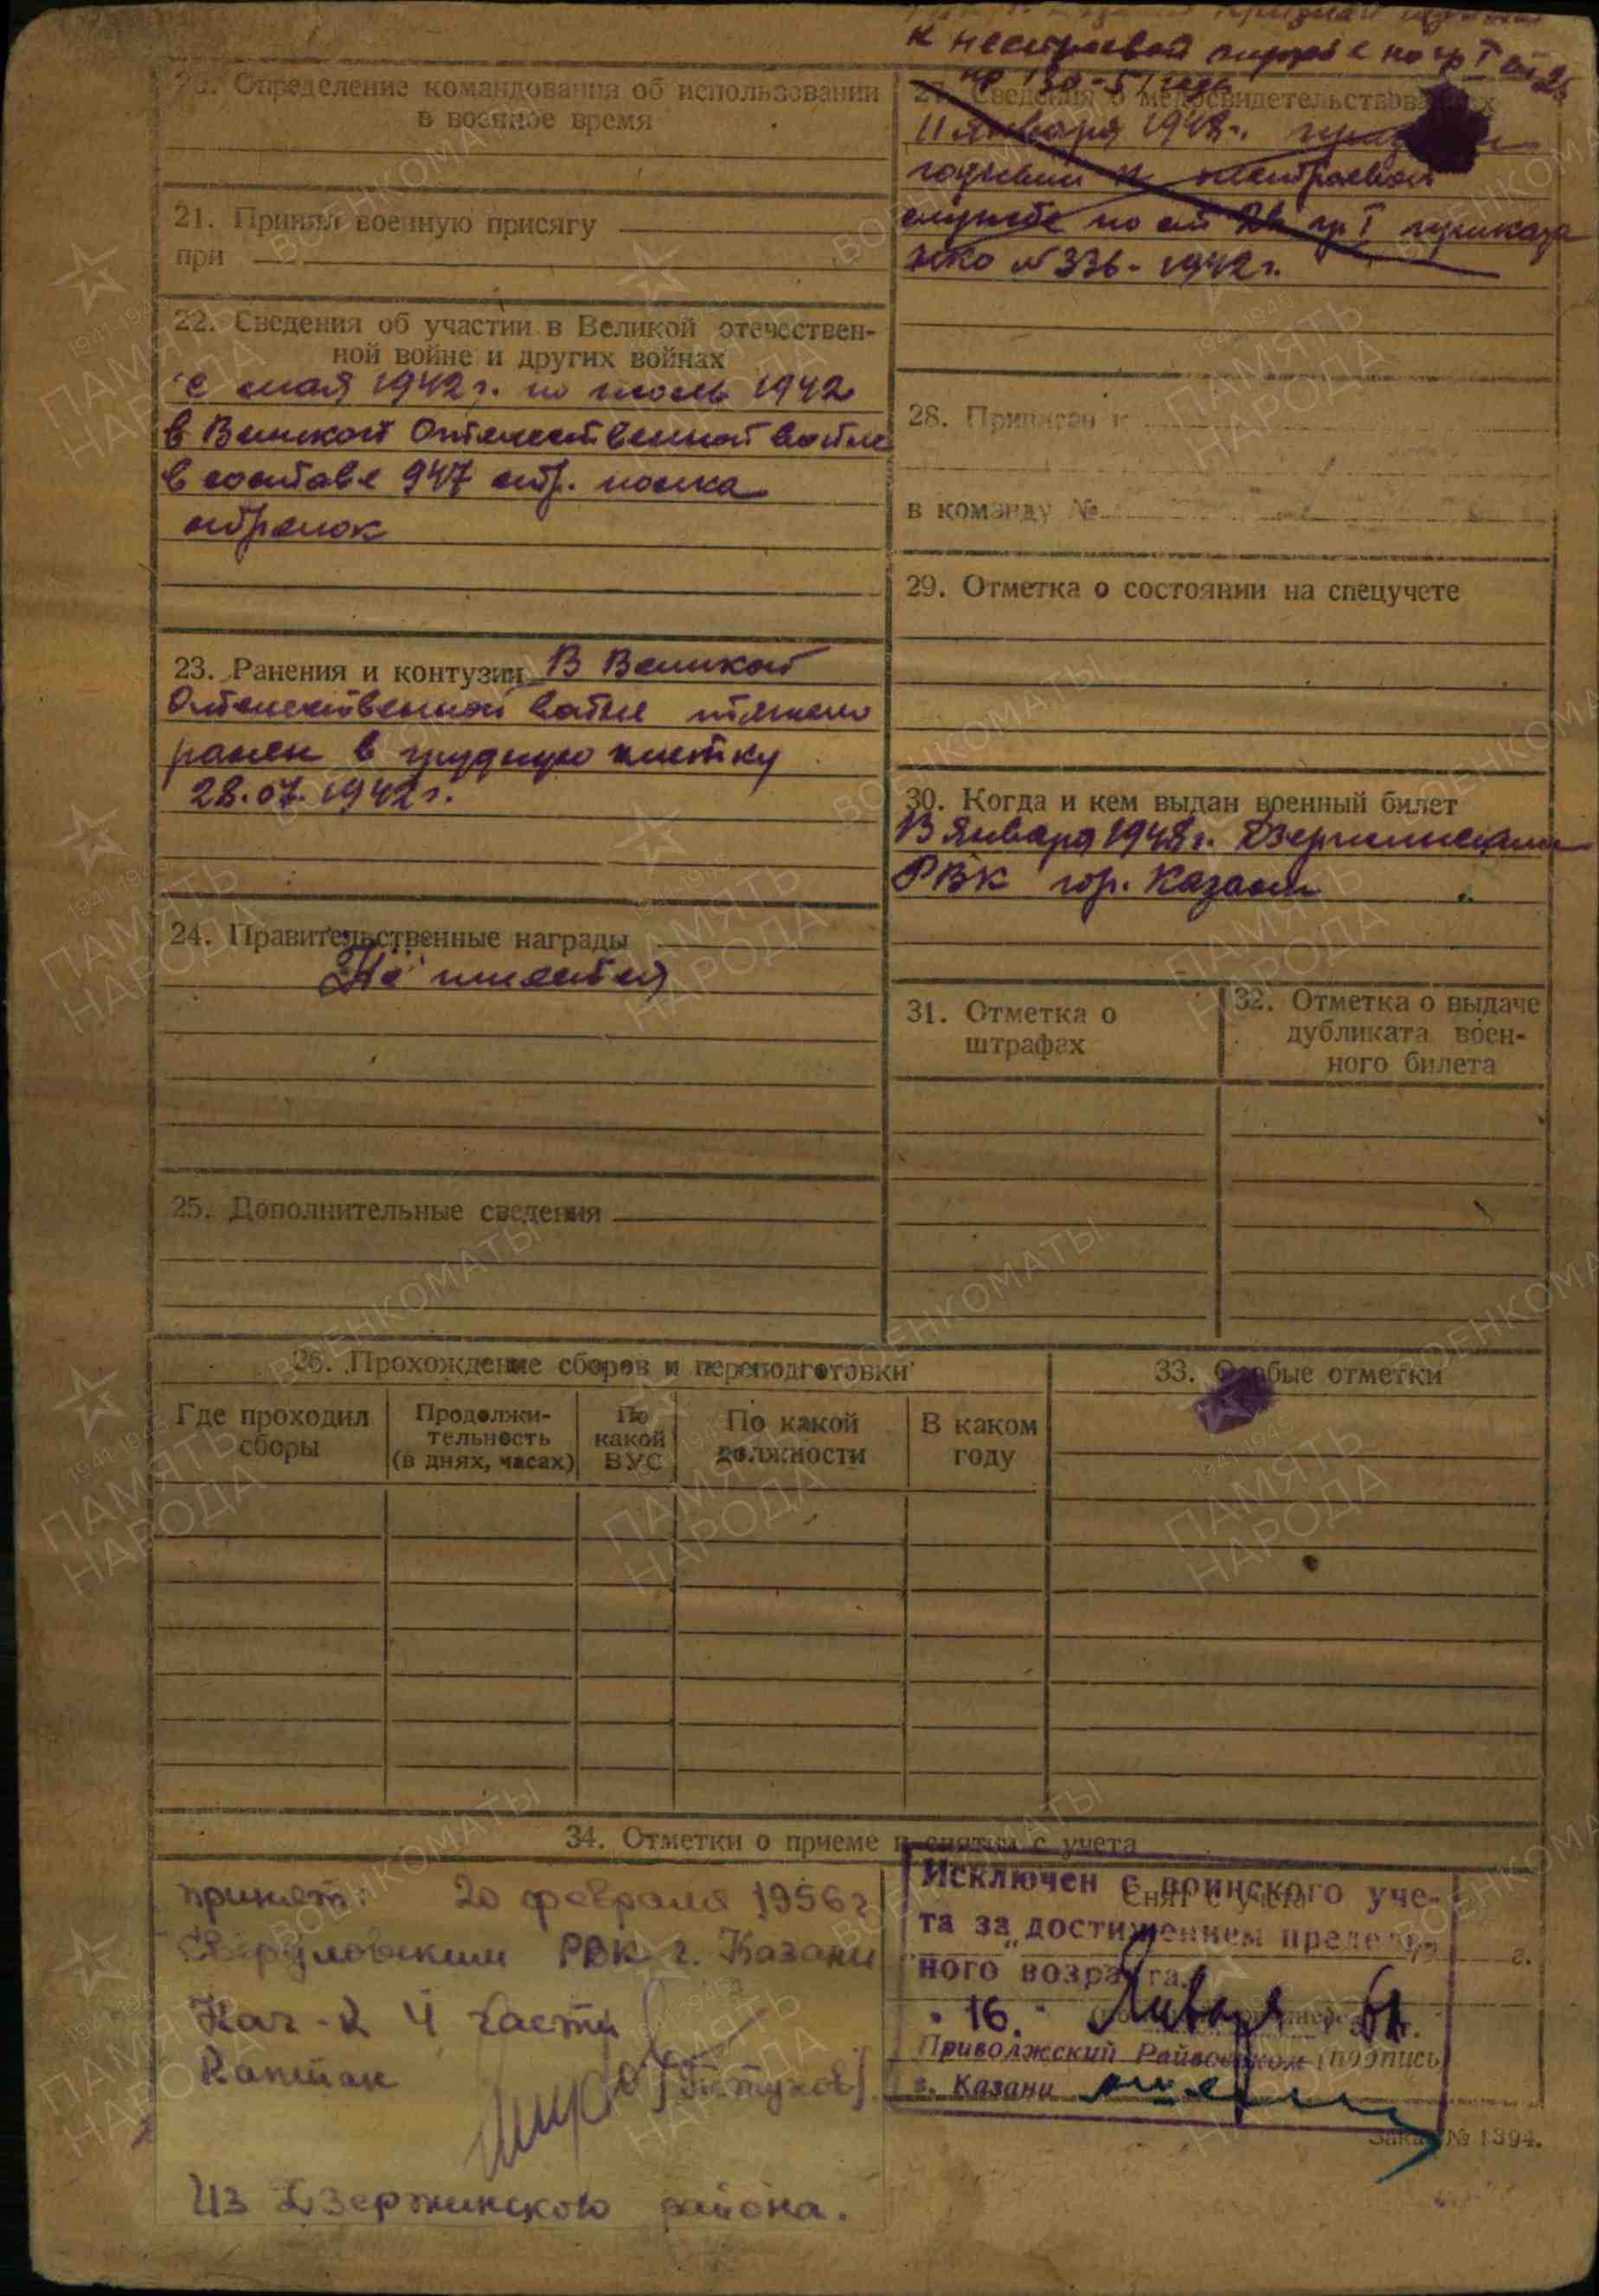 к нестроевой службе по гр I
пр 130-51 года
20. Определение командования об использовании
в военное время
21. Принял военную присягу
при
22. Сведения об участии в Великой отечествен-
ной войне и других войнах
с мая 1942 г. по июль 1942
в Великой Отечественной войне
в составе 947 стр. полка
стрелок
23. Ранения и контузии В Великой
Отечественной войне тяжело
ранен в грудную клетку
28.07.1942 г.
24. Правительственные награды
Не имеет
25. Дополнительные сведения
27. Сведения о медосвидетельствованиях
11 января 1948 г.
годным к нестроевой
службе по ст гр I приказа
НКО № 336-1942 г.
28. Приписан к
в команду №
29. Отметка о состоянии на спецучете
30. Когда и кем выдан военный билет
Января 1948 г. Дзержинским
РВК гор. Казани
31. Отметка о
штрафах
32. Отметка о выдаче
дубликата воен-
ного билета
26. Прохождение сборов и переподготовки
Где проходил
сборы
Продолжи-
тельность
(в днях, часах)
По
какой
ВУС
По какой
должности
В каком
году
33. Особые отметки
34. Отметки о приеме и снятии с учета
принят: 20 февраля 1956 г
Свердловским РВК г. Казани
Нач-к 4 части
Капитан
Из Дзержинского района.
Снят с учета
Исключен с воинского уче-
та за достижением предель-
ного возраста.
"16" Января
Приволжский Райвоенком
г. Казани
(подпись)
Заказ № 1394.
ПАМЯТЬ
НАРОДА
1941-1945
ВОЕНКОМАТЫ